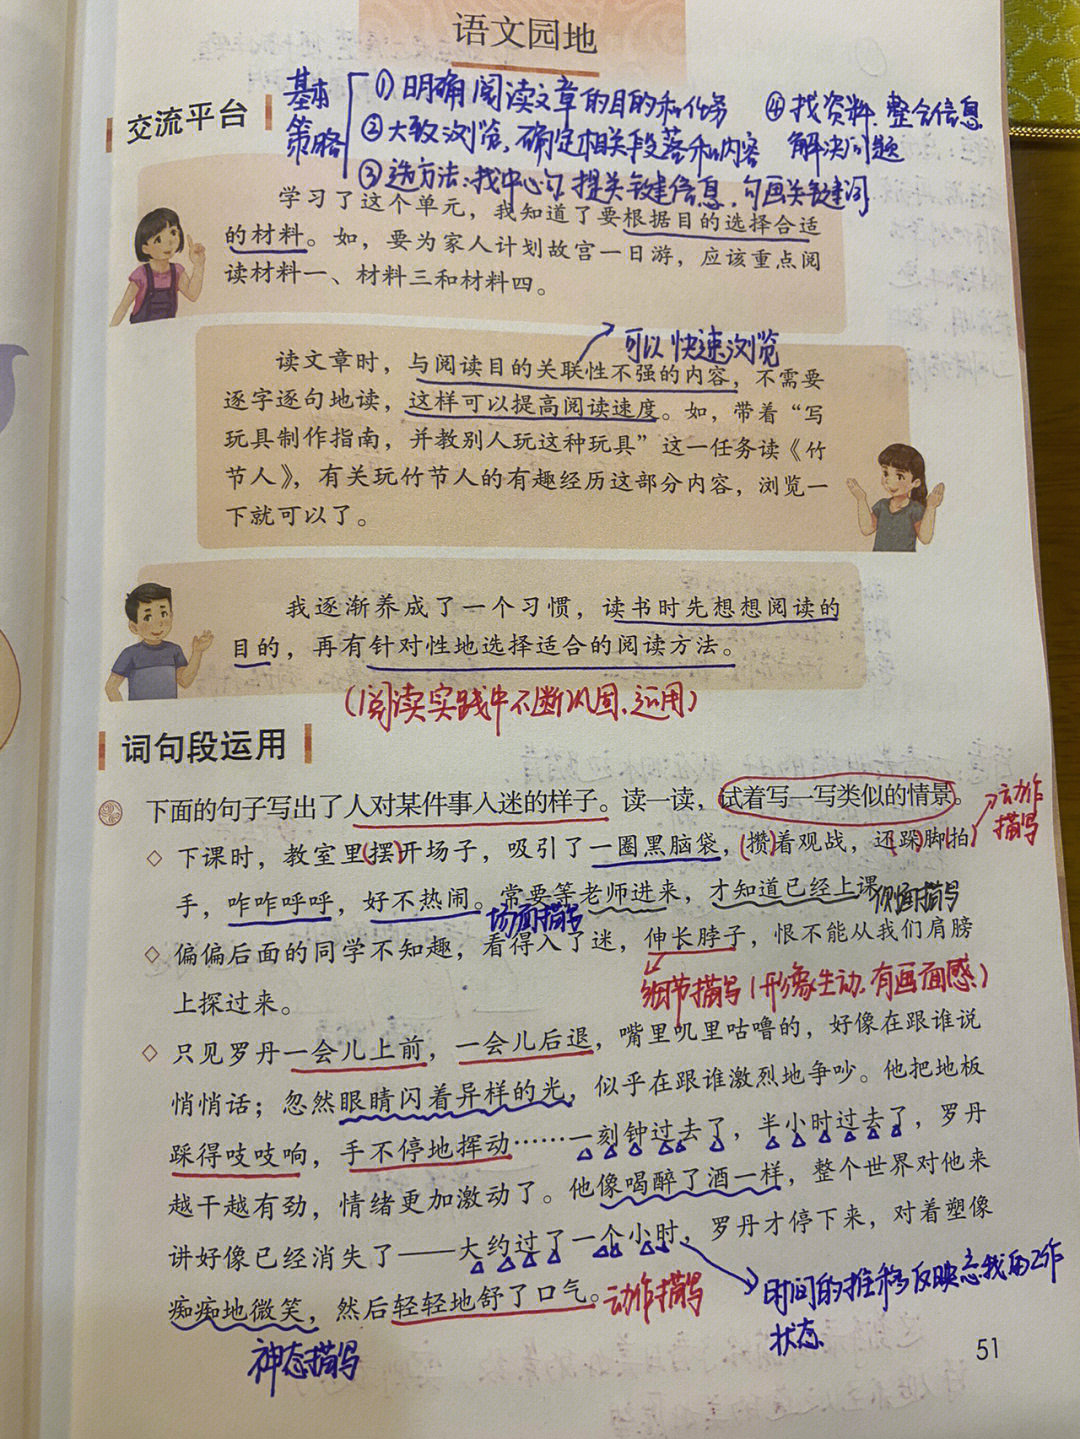 语文园地
交流平台
基本
策略
①明确阅读文章的目的和任务
②大致浏览,确定相关段落和内容
③选方法:找中心句、提关键信息、勾画关键词
④找资料、整合信息
解决问题
学习了这个单元，我知道了要根据目的选择合适
的材料。如，要为家人计划故宫一日游，应该重点阅
读材料一、材料三和材料四。
可以快速浏览
读文章时，与阅读目的关联性不强的内容，不需要
逐字逐句地读，这样可以提高阅读速度。如，带着“写
玩具制作指南，并教别人玩这种玩具”这一任务读《竹
节人》，有关玩竹节人的有趣经历这部分内容，浏览一
下就可以了。
我逐渐养成了一个习惯，读书时先想想阅读的
目的，再有针对性地选择适合的阅读方法。
(阅读实践中不断巩固、运用)
词句段运用
下面的句子写出了人对某件事入迷的样子。读一读，试着写一写类似的情景。
动作
描写
下课时，教室里(摆)开场子，吸引了一圈黑脑袋，(攒)着观战，还(跺)脚(拍)
手，咋咋呼呼，好不热闹。常要等老师进来，才知道已经上课
场面描写
侧面描写
偏偏后面的同学不知趣，看得入了迷，伸长脖子，恨不能从我们肩膀
上探过来。
细节描写(形象生动、有画面感)
只见罗丹一会儿上前，一会儿后退，嘴里叽里咕噜的，好像在跟谁说
悄悄话；忽然眼睛闪着异样的光，似乎在跟谁激烈地争吵。他把地板
踩得吱吱响，手不停地挥动……一刻钟过去了，半小时过去了，罗丹
越干越有劲，情绪更加激动了。他像喝醉了酒一样，整个世界对他来
讲好像已经消失了——大约过了一个小时，罗丹才停下来，对着塑像
痴痴地微笑，然后轻轻地舒了口气。
动作描写
时间的推移反映忘我的工作
状态
神态描写
51